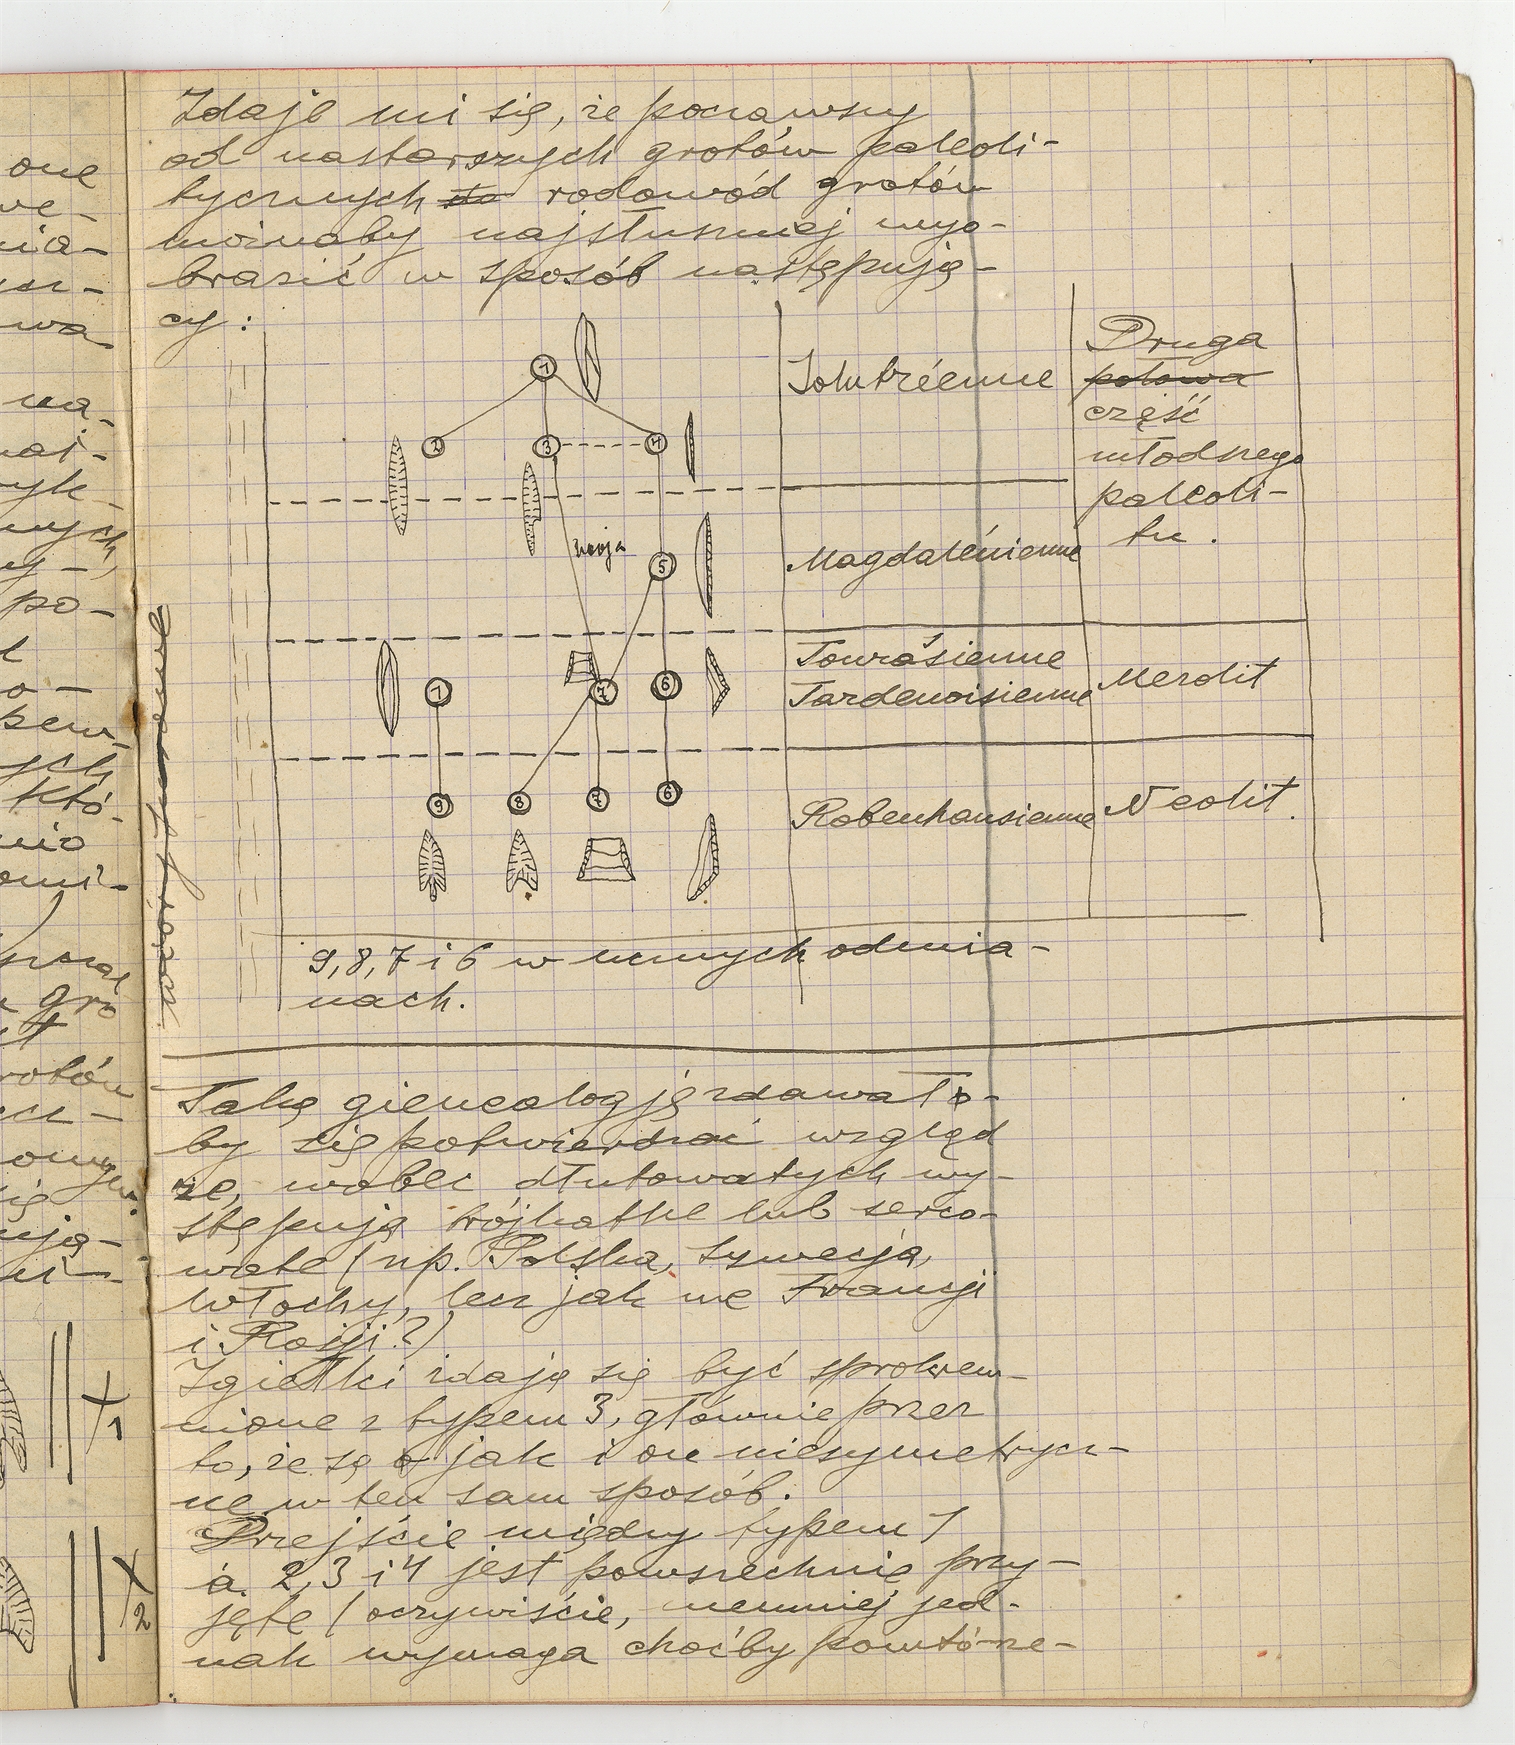 Zdaje mi się, że począwszy
od nastarszych grotów paleoli-
tycznych do rodowód grotów
możnaby najsłuszniej wyo-
brazić w sposób następują-
cy:
1
2 3 4
Solutréenne
Druga
połowa
część
młodszego
paleoli-
tu.
5
Magdalénienne
1 7 6
Tourasienne
Tardenoisienne
Mezolit
9 8 7 6
Robenhausienne
Neolit.
9, 8, 7 i 6 w licznych odmia-
nach.
Taką gienealogję zdawało-
by się potwierdzać wzgląd
że, wobec dłutowatych wy-
stępują trójkątne lub serco-
wate (np. Polska, Szwecja,
Włochy, lecz jak we Francji
i Rosji?)
Igiełki zdają się być spokrew-
nione z typem 3, głównie przez
to, że są jak i on niesymetrycz-
ne w ten sam sposób.
Przejście między typem 1
a 2, 3 i 4 jest powszechnie przy-
jęte (oczywiście, niemniej jed-
nak wymaga choćby powtórze-
one
we-
nia-
wa
po-
któ-
gro
X1
X2